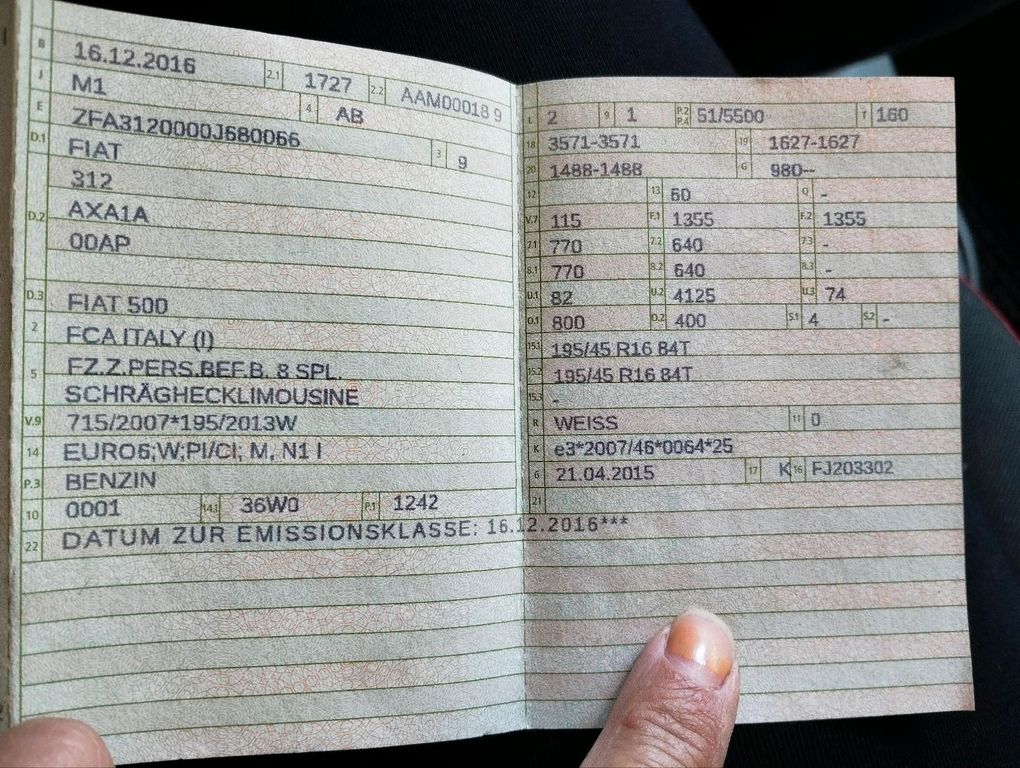 B 16.12.2016 2.1 1727 2.2 AAM00018 9
J M1 4 AB
E ZFA3120000J680066 3 9
D.1 FIAT
312
D.2 AXA1A
00AP
D.3 FIAT 500
2 FCA ITALY (I)
5 FZ.Z.PERS.BEF.B. 8 SPL.
SCHRÄGHECKLIMOUSINE
V.9 715/2007*195/2013W
14 EURO6;W;PI/CI; M, N1 I
P.3 BENZIN
10 0001 14.1 36W0 P.1 1242
22 DATUM ZUR EMISSIONSKLASSE: 16.12.2016***
L 2 9 1 P.2 P.4 51/5500 T 160
18 3571-3571 19 1627-1627
20 1488-1488 G 980--
12 13 60 Q -
V.7 115 F.1 1355 F.2 1355
7.1 770 7.2 640 7.3 -
8.1 770 8.2 640 8.3 -
U.1 82 U.2 4125 U.3 74
O.1 800 O.2 400 S.1 4 S.2 -
15.1 195/45 R16 84T
15.2 195/45 R16 84T
15.3 -
R WEISS 11 0
K e3*2007/46*0064*25
6 21.04.2015 17 K 16 FJ203302
21